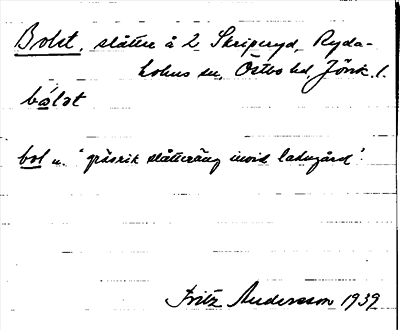 Bolet, slåtter å 2 Skeperyd, Ryda-
holms sn, Östbo hd, Jönk. l.
bólət
bol n. 'gräsrik slätteräng invid ladugård'.
Fritz Andersson 1939